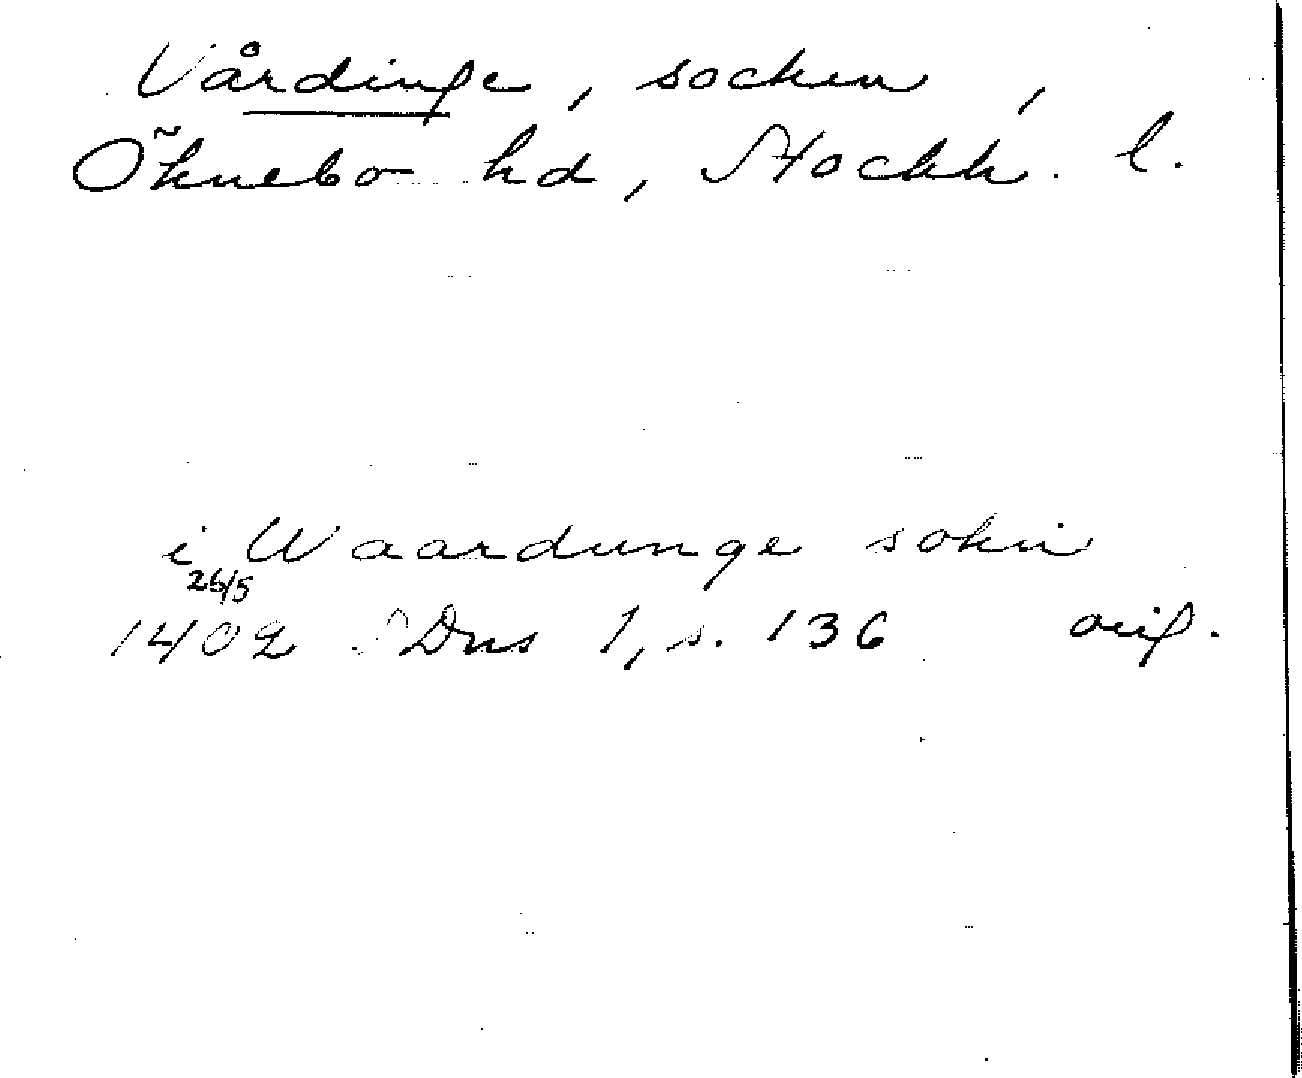 Vårdinge, socken,
Öknebo hd, Stockh. l.
i Waardunge sokn
26/5
1402 SDns 1, s. 136 orig.